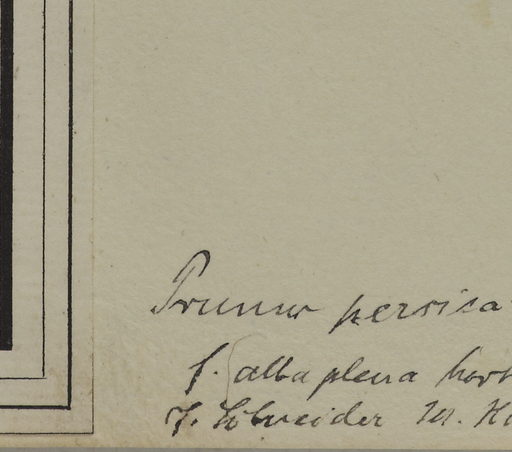 Prunus persica
f. alba plena hort
Schneider